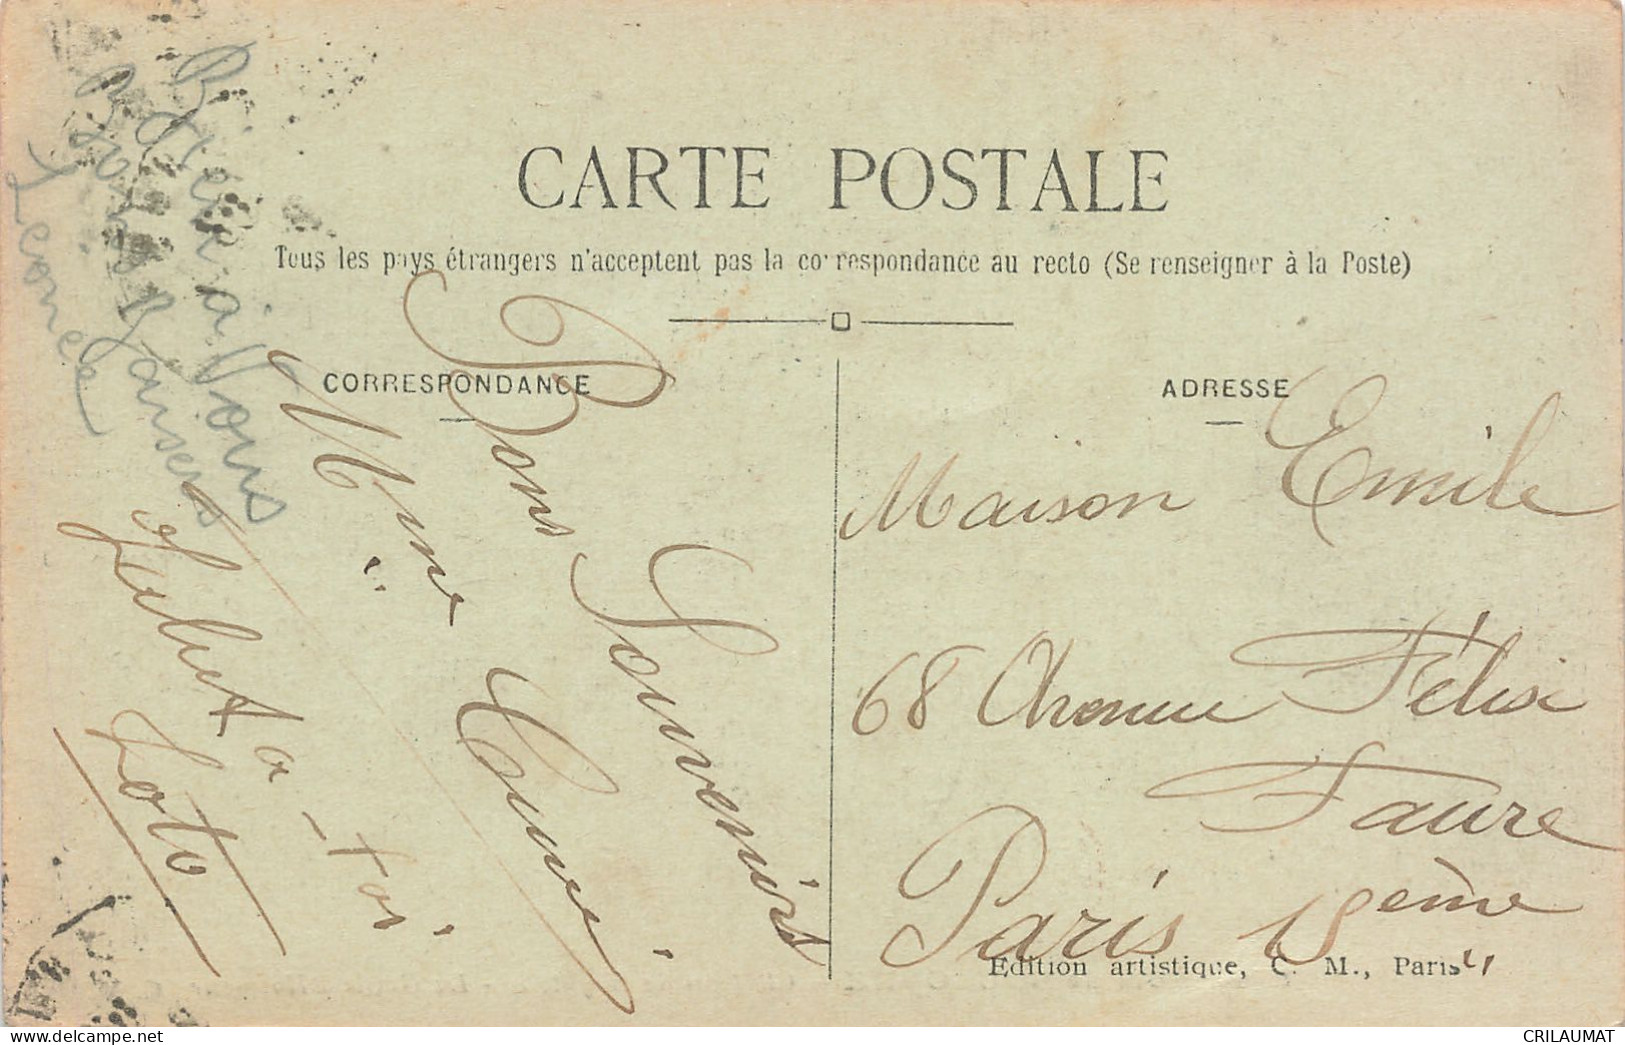 CARTE POSTALE
Tous les pays étrangers n'acceptent pas la correspondance au recto (Se renseigner à la Poste)
CORRESPONDANCE
ADRESSE
Bien à Vous
Bons Baisers
Léonce
Bons Souvenirs
Mme
à toi
Toto
Maison Emile
68 Avenue Félix
Faure
Paris 15ème
Edition artistique, C. M., Paris
CRILAUMAT